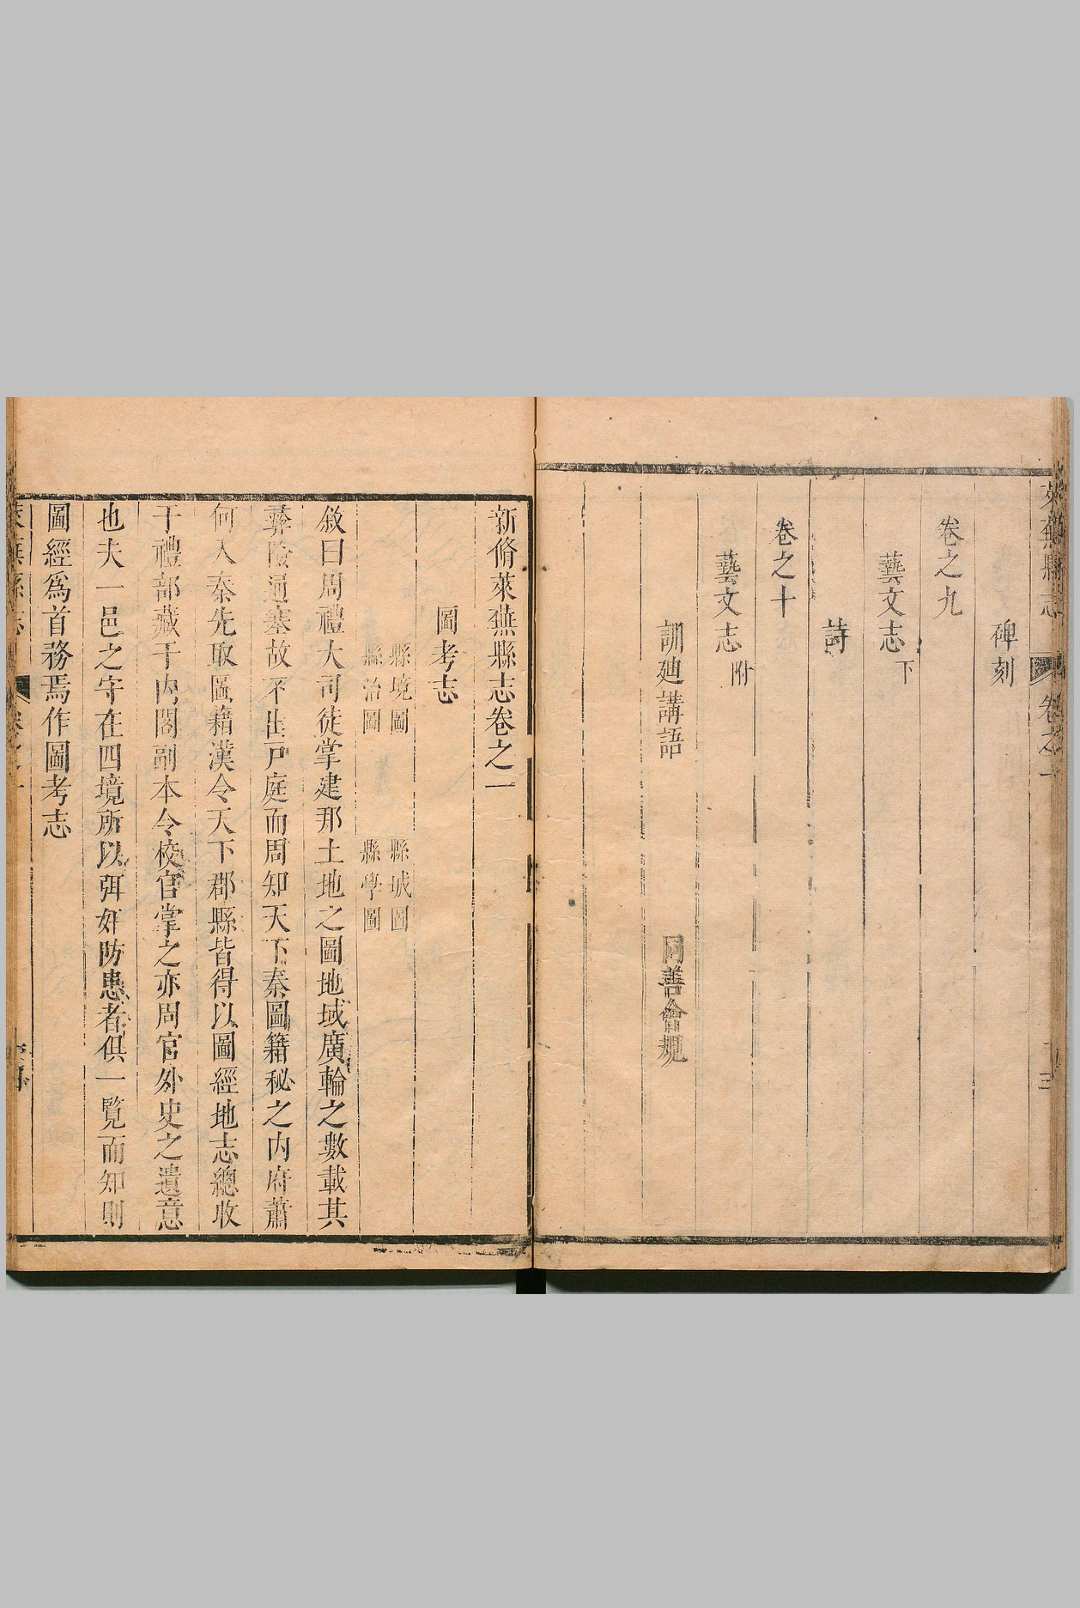 萊蕪縣志 卷之一 三
碑刻
卷之九
藝文志下
詩
卷之十
藝文志附
訓廸講語 同善會規
新脩萊蕪縣志卷之一
圖考志
縣境圖 縣城圖
縣治圖 縣學圖
敘曰周禮大司徒掌建邦土地之圖地域廣輪之數載其
彝險通塞故不出戸庭而周知天下秦圖籍秘之内府蕭
何入秦先取圖籍漢令天下郡縣皆得以圖經地志總收
于禮部藏于内閣副本令校官掌之亦周官外史之遺意
也夫一邑之守在四境所以弭奸防患者俱一覧而知則
圖經爲首務焉作圖考志
萊蕪縣志 卷之一